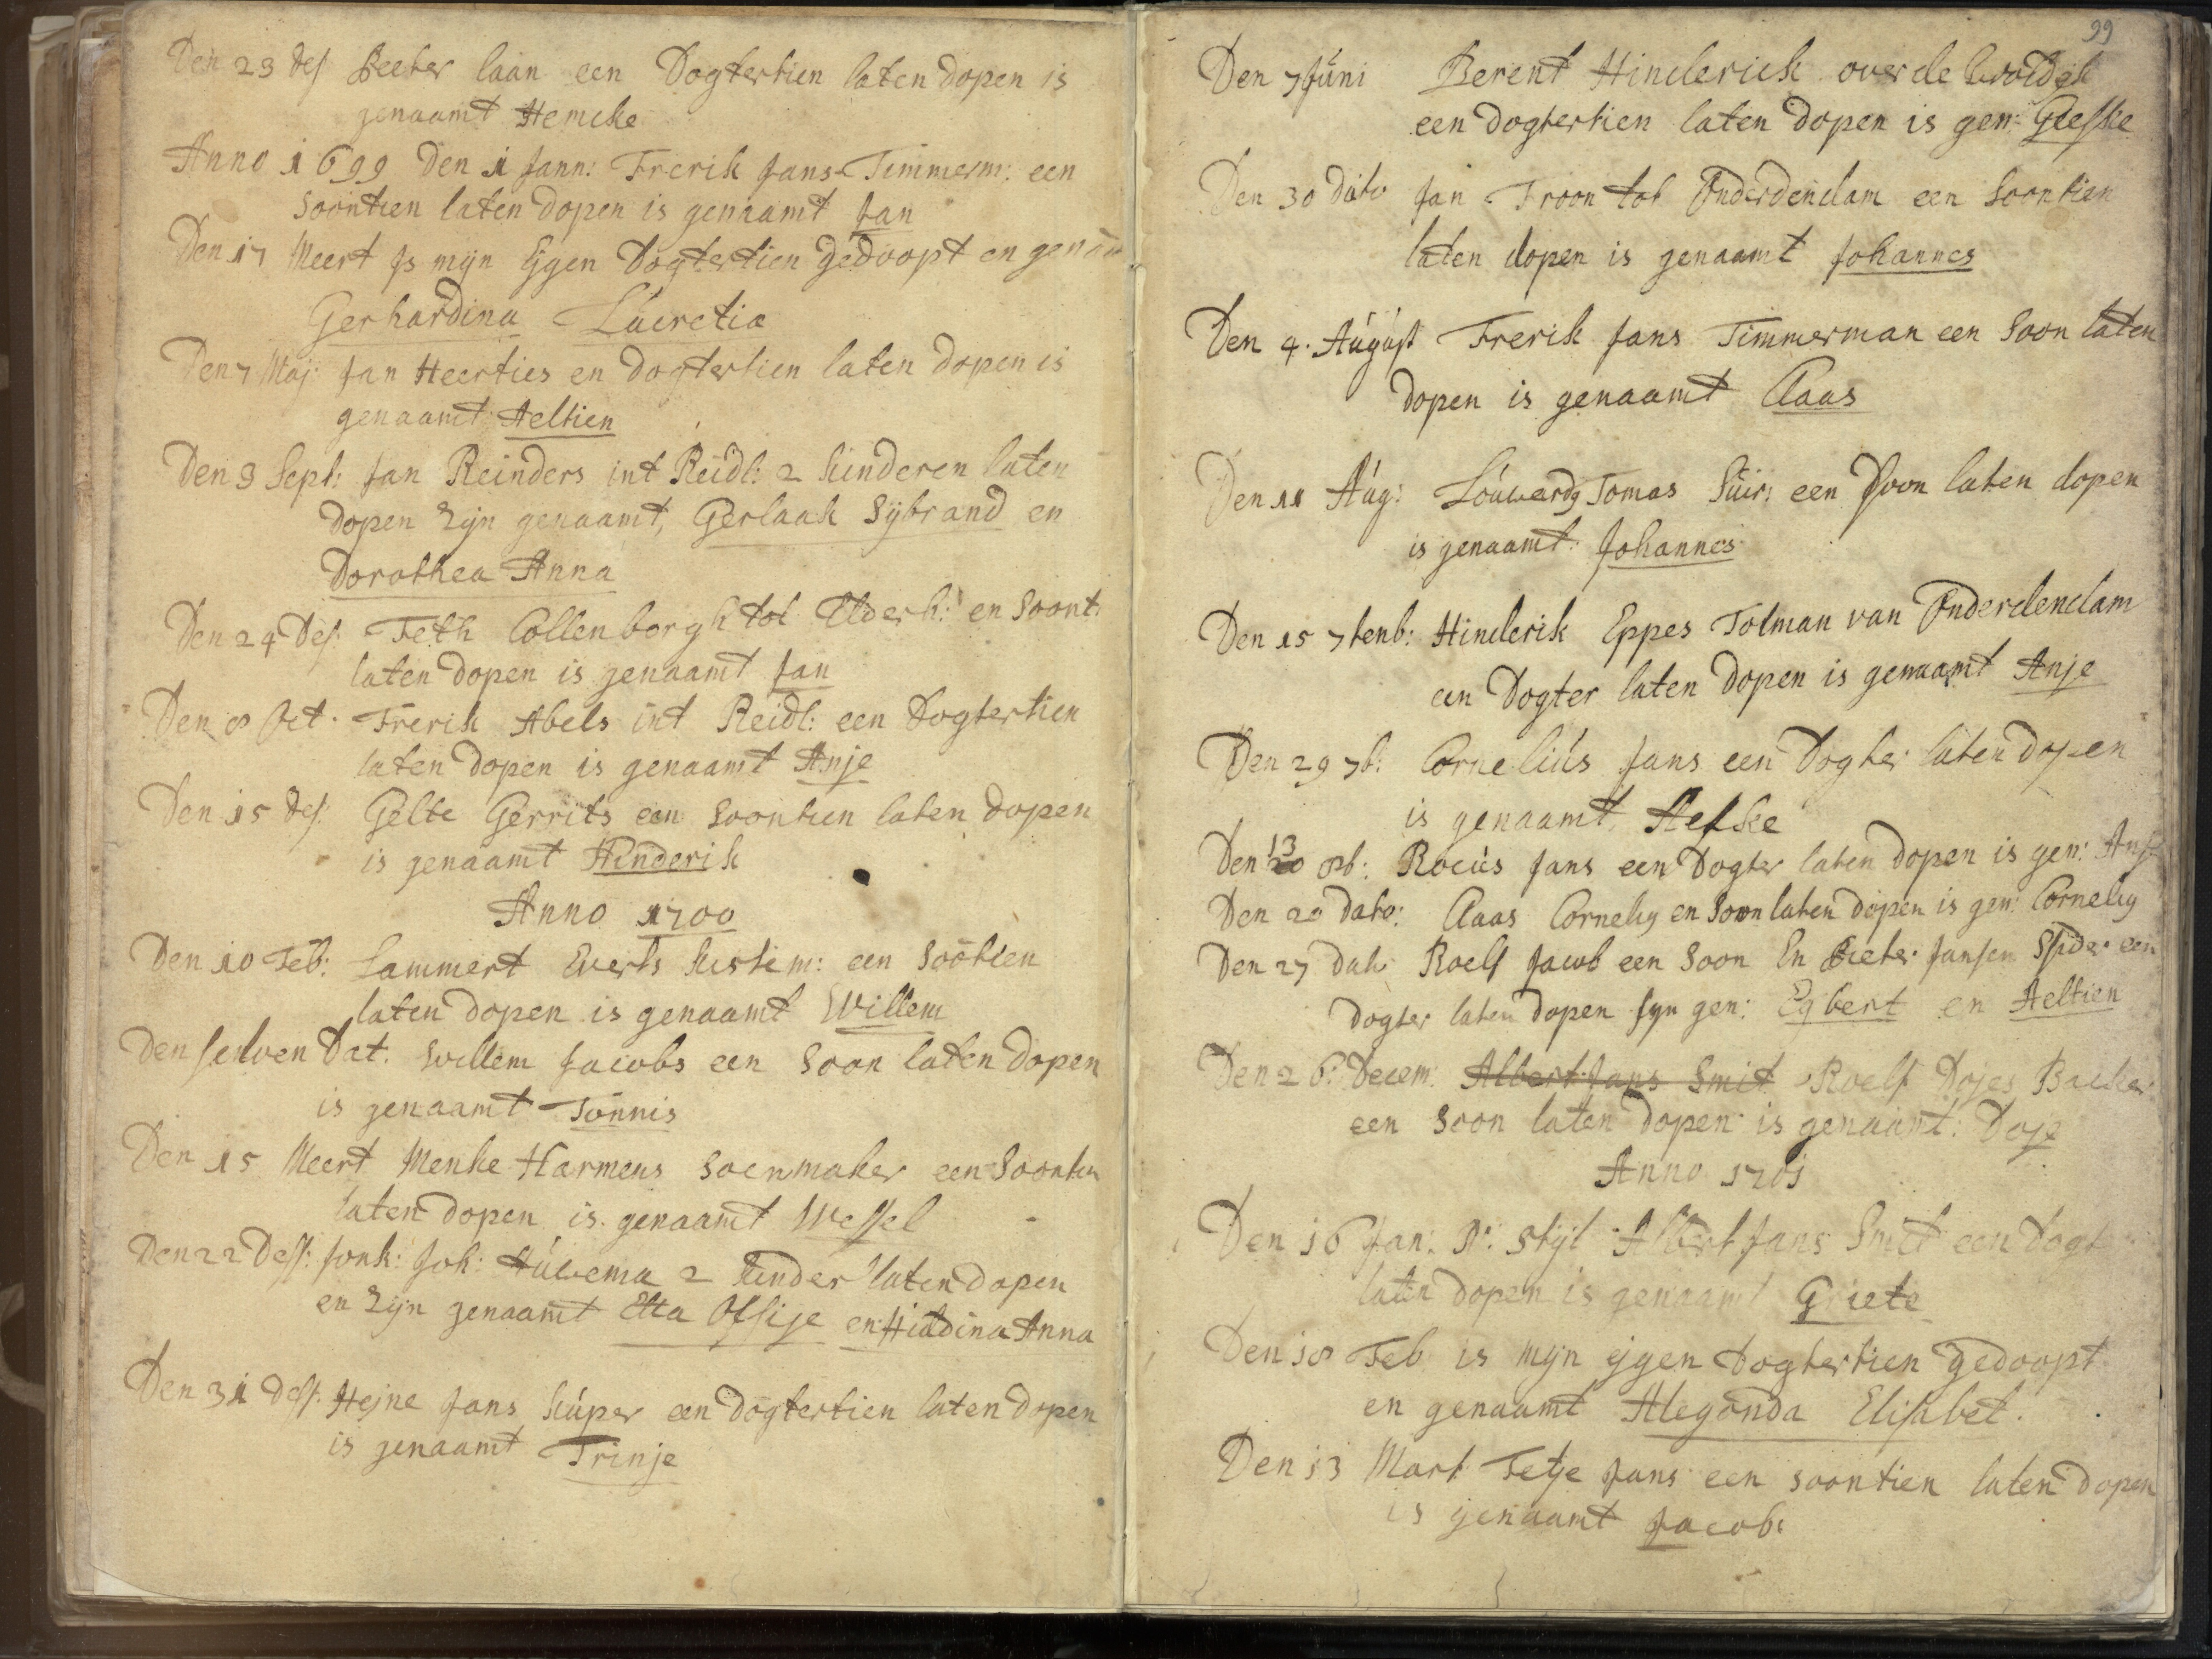 Den 23 des Peeter laan een Dogtertien laten dopen is
genaamt Hemcke
Anno 1699 Den 1 Jann: Frerik Jans Timmerm: een
Soontien laten dopen is genaamt Jan
Den 17 Meert Js mijn Eygen Dogtertien gedoopt en genam
Gerhardina Lucretia
Den 7 Maj: Jan Heerties en dogtertien laten dopen is
genaamt Aeltien
Den 3 Sept: Jan Reinders int Reidl: 2 kinderen laten
dopen zijn genaamt, Gerlaak Sijbrand en
Dorothea Anna
Den 24 Des: Feth Collenborgh tot Elderh: en Soont:
laten dopen is genaamt Jan
Den 8 Oct. Frerik Abels int Reidl: een Dogtertien
laten dopen is genaamt Anje
Den 15 des: Gelte Gerrits een Soontien laten dopen
is genaamt Hinderik
Anno 1700
Den 10 Feb: Lammert Everts kistem: een Sootien
laten dopen is genaamt Willem
Den selven Dat. Willem Jacobs een Soon laten dopen
is genaamt Tonnis
Den 15 Meert Menke Harmens Soenmaker een Soontien
laten dopen is genaamt Wessel
Den 22 Dess: Jonk: Joh: Húwema 2 kinder laten dopen
en zijn genaamt Etta Ossije en Hiddina Anna
Den 31 dess: Hejne Jans kúper een dogtertien laten dopen
is genaamt Trinje
99
Den 7 Júni Berent Hinderick over de
een dogtertien laten dopen is gen: Geeske
Den 30 dato Jan Troon tot Onderdendam een Soontien
laten dopen is genaamt Johannes
Den 4. Aúgúst Frerik Jans Timmerman een Soon laten
dopen is genaamt Claas
Den 11 Aúg: Loúwerdg Tomas Súir: een Soon laten dopen
is genaamt: Johannes
Den 15 7tenb: Hinderik Eppes Tolman van Onderdendam
een Dogter laten dopen is genaamt Anje
Den 29 7b: Corneliús Jans een Dogter laten dopen
is genaamt Aefke
Den 13 8b: Rociús Jans een Dogter laten dopen is gen: Anje
Den 20 dato: Claas Cornelig en Soon laten dopen is gen: Cornelig
Den 27 dato Roelf Jacob een Soon En Pieter Jansen Spider een
dogter laten dopen syn gen: Egbert en Aeltien
Den 26: Decem: Albert Jans Smit Roelf Dojes Backer
een Soon laten dopen is genaamt: Doje
Anno 1701
Den 16 Jan: N: Stijl Albert Jans Smit een dogt
laten dopen is genaamt Griete
Den 18 Feb is mijn ejgen dogtertien gedoopt
en genaamt Alegonda Elisabet.
Den 13 Mart Tetje Jans een soontien laten dopen
is genaamt Jacob: